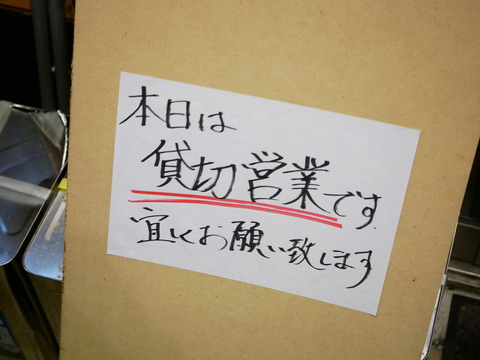 本日は
貸切営業です
宜しくお願い致します